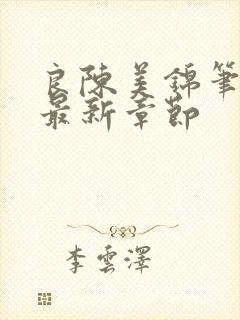 良陳美錦筆
最新章節
李雲澤